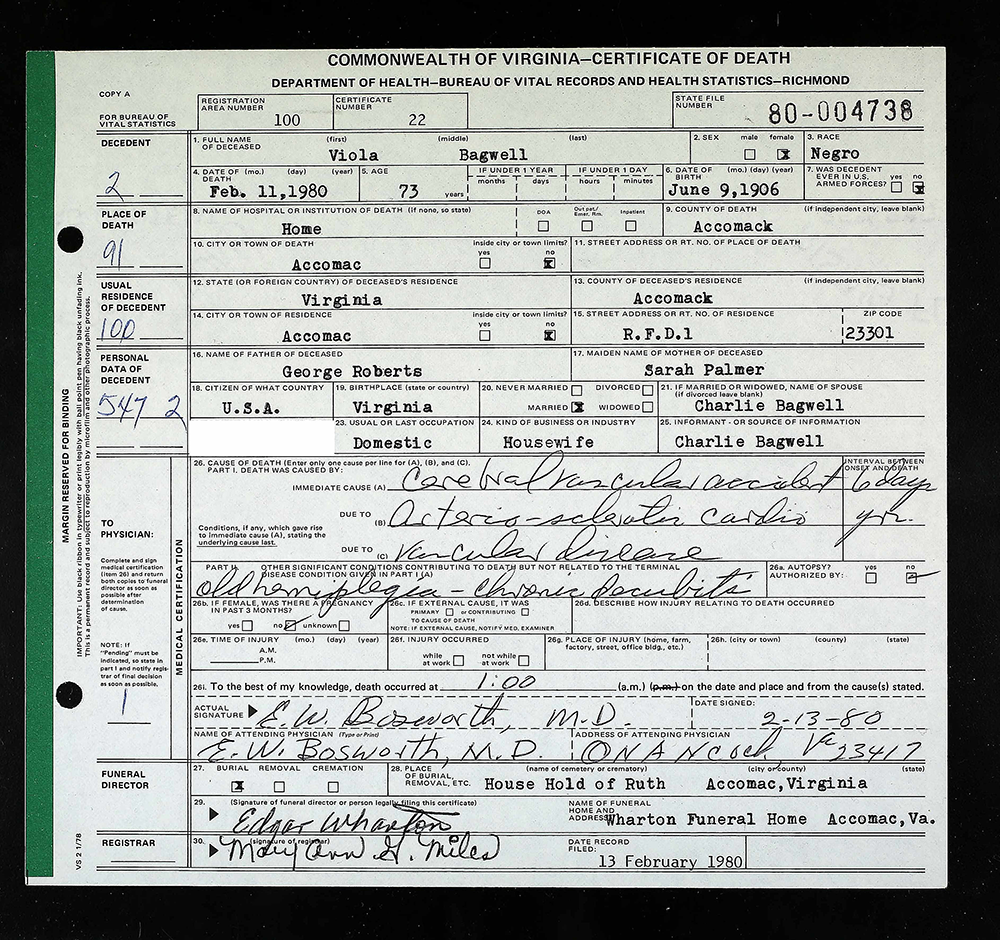 COMMONWEALTH OF VIRGINIA—CERTIFICATE OF DEATH
DEPARTMENT OF HEALTH—BUREAU OF VITAL RECORDS AND HEALTH STATISTICS—RICHMOND
COPY A
FOR BUREAU OF VITAL STATISTICS
REGISTRATION AREA NUMBER 100
CERTIFICATE NUMBER 22
STATE FILE NUMBER 80-004738
DECEDENT
2
1. FULL NAME OF DECEASED (first) (middle) (last)
Viola Bagwell
2. SEX male female x
3. RACE
Negro
4. DATE OF DEATH (mo.) (day) (year)
Feb. 11,1980
5. AGE
73 years
IF UNDER 1 YEAR
months days
IF UNDER 1 DAY
hours minutes
6. DATE OF BIRTH (mo.) (day) (year)
June 9,1906
7. WAS DECEDENT EVER IN U.S. ARMED FORCES? yes no x
PLACE OF DEATH
91
8. NAME OF HOSPITAL OR INSTITUTION OF DEATH (if none, so state)
Home
DOA Out pat./ Emer. Rm. Inpatient
9. COUNTY OF DEATH (if independent city, leave blank)
Accomack
10. CITY OR TOWN OF DEATH
Accomac
inside city or town limits?
yes no x
11. STREET ADDRESS OR RT. NO. OF PLACE OF DEATH
USUAL RESIDENCE OF DECEDENT
100
12. STATE (OR FOREIGN COUNTRY) OF DECEASED'S RESIDENCE
Virginia
13. COUNTY OF DECEASED'S RESIDENCE (if independent city, leave blank)
Accomack
14. CITY OR TOWN OF RESIDENCE
Accomac
inside city or town limits?
yes no x
15. STREET ADDRESS OR RT. NO. OF RESIDENCE
R.F.D.1
ZIP CODE
23301
PERSONAL DATA OF DECEDENT
547 2
16. NAME OF FATHER OF DECEASED
George Roberts
17. MAIDEN NAME OF MOTHER OF DECEASED
Sarah Palmer
18. CITIZEN OF WHAT COUNTRY
U.S.A.
19. BIRTHPLACE (state or country)
Virginia
20. NEVER MARRIED DIVORCED
MARRIED x WIDOWED
21. IF MARRIED OR WIDOWED, NAME OF SPOUSE
(if divorced leave blank)
Charlie Bagwell
23. USUAL OR LAST OCCUPATION
Domestic
24. KIND OF BUSINESS OR INDUSTRY
Housewife
25. INFORMANT - OR SOURCE OF INFORMATION
Charlie Bagwell
MARGIN RESERVED FOR BINDING
IMPORTANT: Use black ribbon in typewriter or print legibly with ball point pen having black unfading ink.
This is a permanent record and subject to reproduction by microfilm and other photographic process.
VS 2 1/78
TO PHYSICIAN:
Complete and sign medical certification (item 26) and return both copies to funeral director as soon as possible after determination of cause.
NOTE: If "Pending" must be indicated, so state in part I and notify registrar of final decision as soon as possible.
1
MEDICAL CERTIFICATION
26. CAUSE OF DEATH (Enter only one cause per line for (A), (B), and (C).
PART I. DEATH WAS CAUSED BY:
INTERVAL BETWEEN ONSET AND DEATH
IMMEDIATE CAUSE (A) Cerebral vascular accident 6 days
DUE TO (B) Arterio-sclerotic cardio yr.
Conditions, if any, which gave rise to immediate cause (A), stating the underlying cause last.
DUE TO (C) vascular disease
PART II. OTHER SIGNIFICANT CONDITIONS CONTRIBUTING TO DEATH BUT NOT RELATED TO THE TERMINAL DISEASE CONDITION GIVEN IN PART I (A)
old hemiplegia - chronic decubiti
26a. AUTOPSY? AUTHORIZED BY: yes no
26b. IF FEMALE, WAS THERE A PREGNANCY IN PAST 3 MONTHS?
yes no unknown
26c. IF EXTERNAL CAUSE, IT WAS
PRIMARY or CONTRIBUTING
TO CAUSE OF DEATH
NOTE: IF EXTERNAL CAUSE, NOTIFY MED. EXAMINER
26d. DESCRIBE HOW INJURY RELATING TO DEATH OCCURRED
26e. TIME OF INJURY (mo.) (day) (year)
A.M.
P.M.
26f. INJURY OCCURRED
while at work not while at work
26g. PLACE OF INJURY (home, farm, factory, street, office bldg., etc.)
26h. (city or town) (county) (state)
26i. To the best of my knowledge, death occurred at 1:00 (a.m.) (p.m.) on the date and place and from the cause(s) stated.
ACTUAL SIGNATURE E. W. Bosworth, M.D.
DATE SIGNED: 2-13-80
NAME OF ATTENDING PHYSICIAN (Type or Print)
E. W. Bosworth, M.D.
ADDRESS OF ATTENDING PHYSICIAN
ONANcock, Va 23417
FUNERAL DIRECTOR
27. BURIAL REMOVAL CREMATION
x
28. PLACE OF BURIAL, REMOVAL, ETC. (name of cemetery or crematory) (city or county) (state)
House Hold of Ruth Accomac,Virginia
29. (Signature of funeral director or person legally filing this certificate)
Edgar Wharton
NAME OF FUNERAL HOME AND ADDRESS
Wharton Funeral Home Accomac,Va.
REGISTRAR
30. (signature of registrar)
Mary Ann H. Miles
DATE RECORD FILED:
13 February 1980